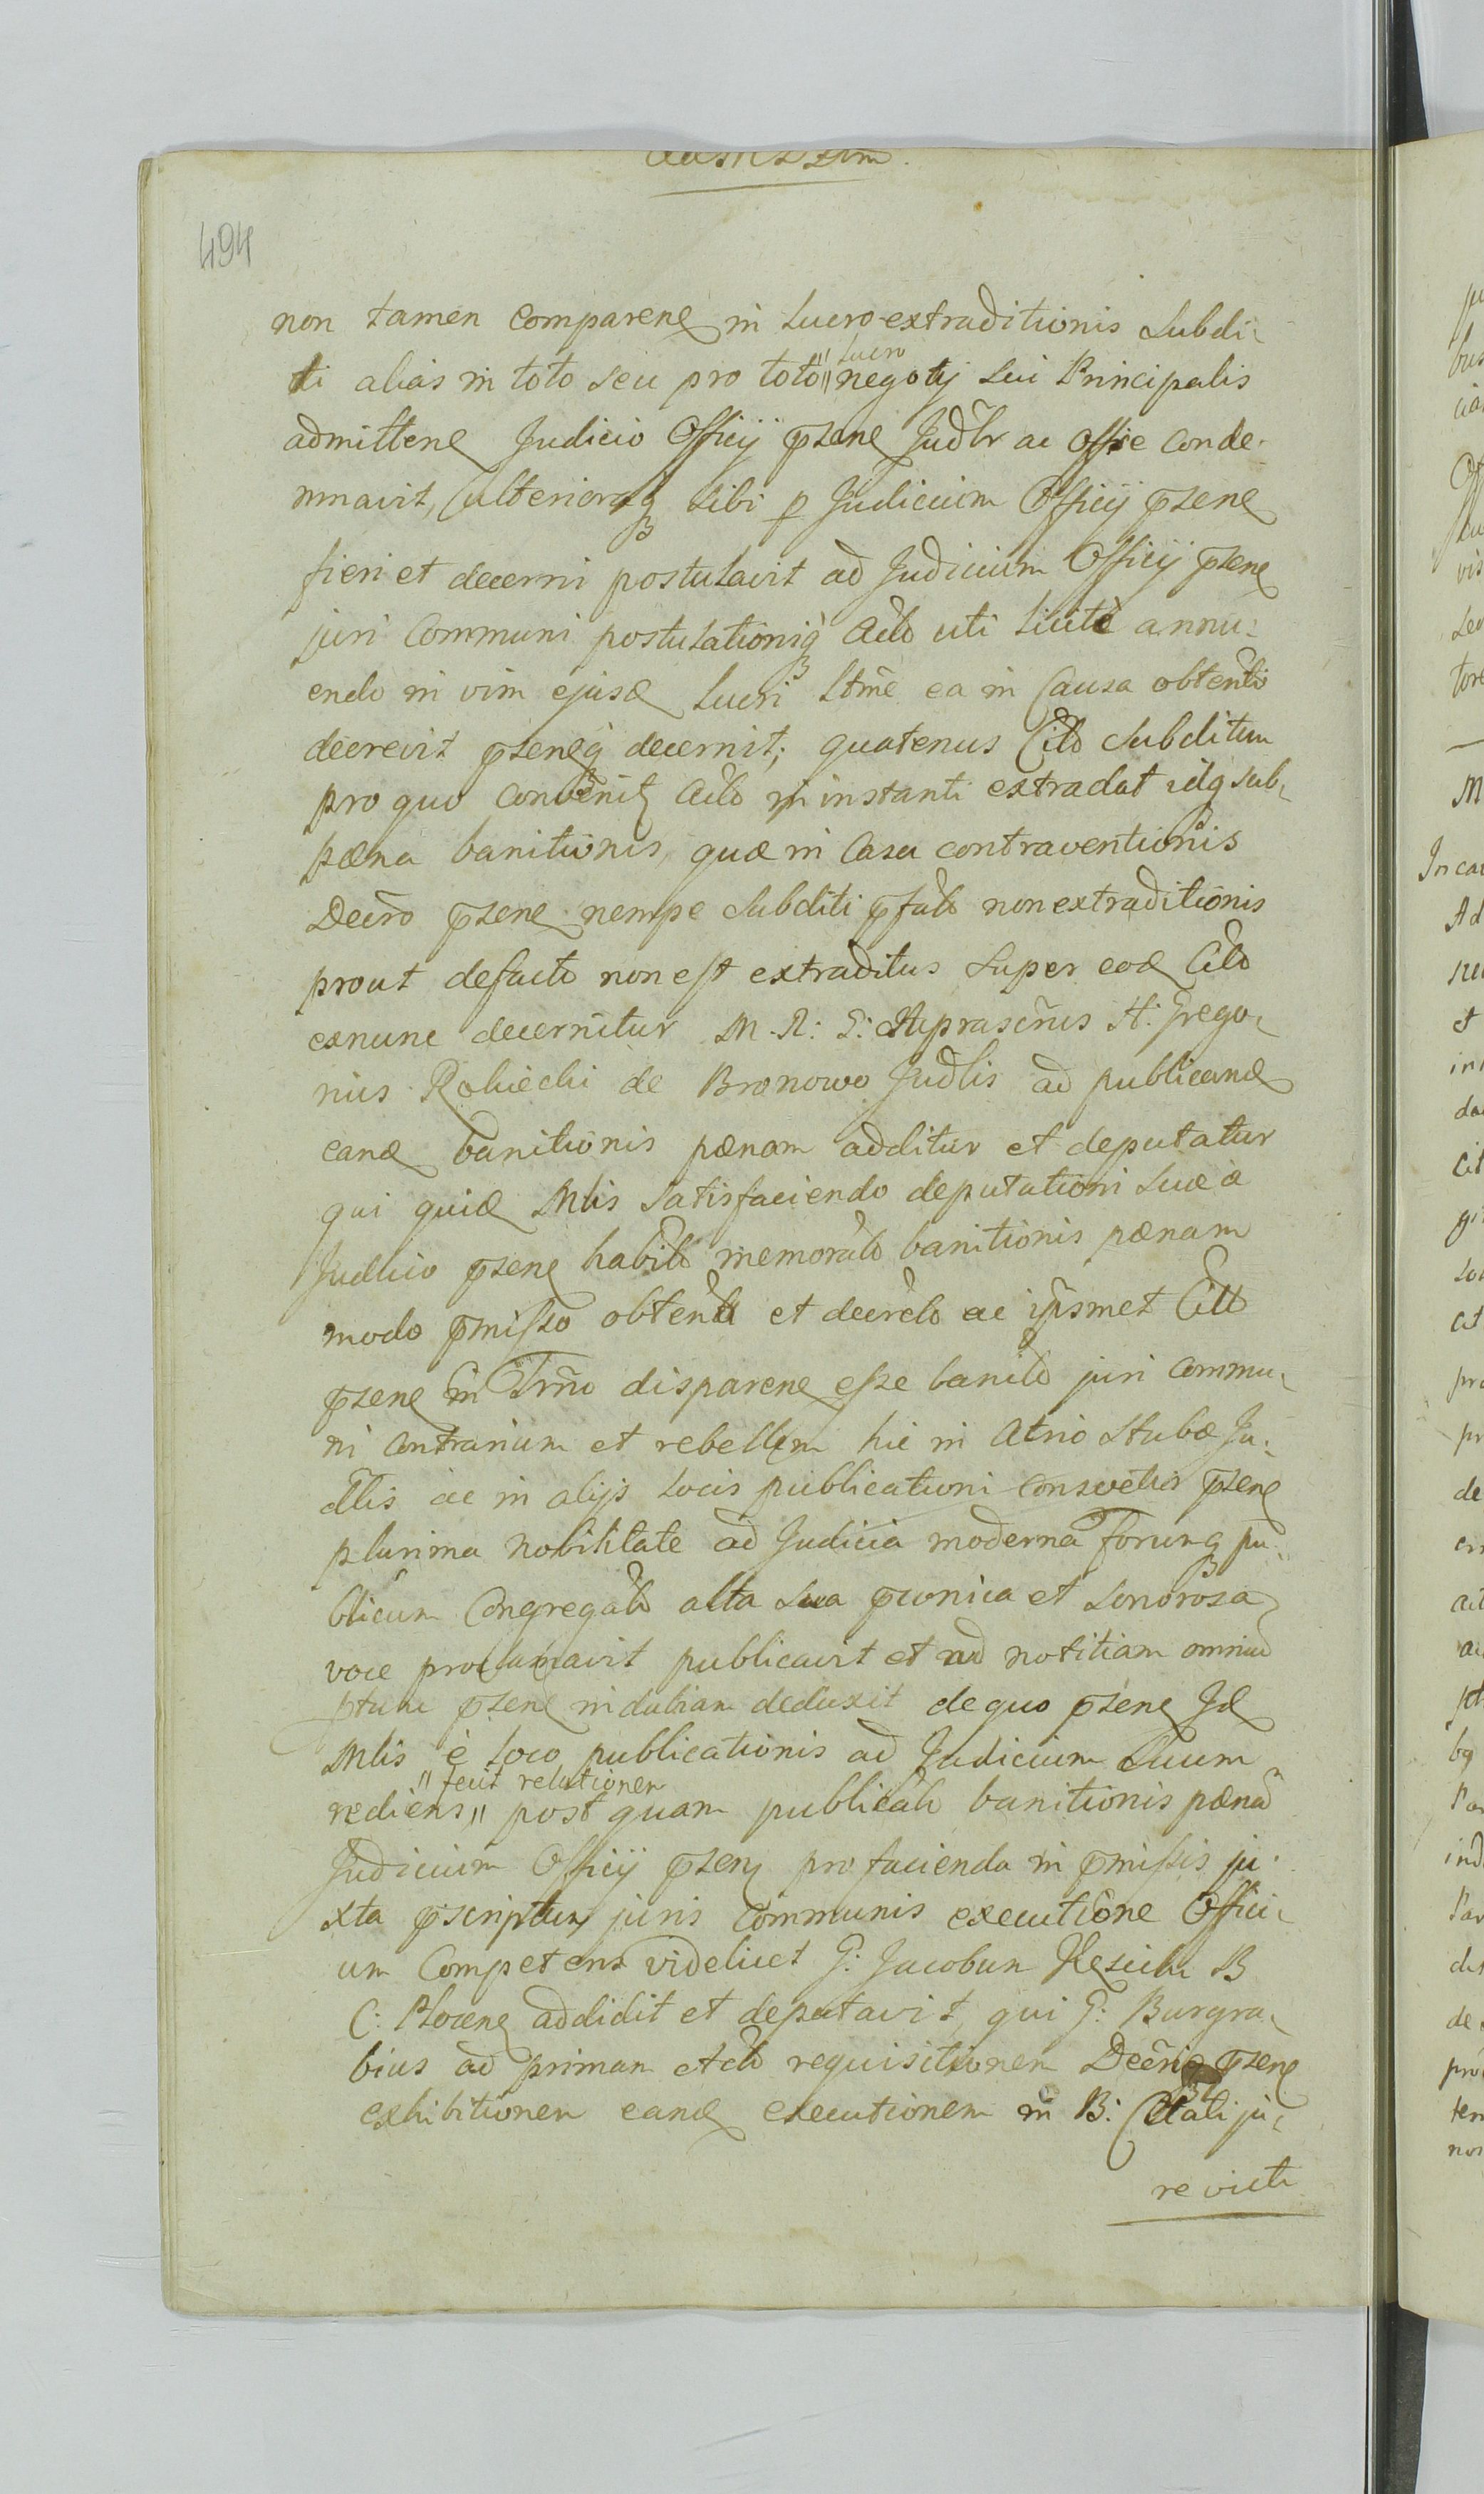 494
non tamen comparen in Lucro extraditionis Subdi-
ti alias in toto seu pro toto "Lucro" negotij sui Principalis
admitten Judicio Officij pñzen Judlr ac Offse conde-
mnavit, ulterioraq sibi p Judicium Officij pñzen
fieri et decerni postulavit ad Judicium Officij pñzen
juri Communi postulationiq Acto uti licite annu-
endo in vim ejusd Lucri Ltme ea in Causa obtento
decrevit pñzenq decernit; quatenus Citto Subditum
pro quo convenit Acto in instanti extradat idq sub
pæna banitionis, quæ in Casu contraventionis
Decro pñzen nempe Subditi pfato non extraditionis
prout defacto non est extraditus Super eod Citto
exnunc decernitur M. R: G: H: Grego-
rius de Bronowo Judlis ad publicand
eand banitionis pænam additur et deputatur
qui quid Mlis Satisfaciendo deputationi Suæ a
Judicio pñzen habito memorato banitionis pænam
modo pmisso obtento et decreto ac ipsmet Citto
pñzen in Trno disparen esse banito juri commu-
ni Contrarium et rebellem hic in Atrio Stubæ Ju-
dlis ac in alijs Locis publicationi consvetis pñzen
plurima Nobilitate ad Judicia moderna Forumq pu-
blicum Congregato alta Sua pconica et Sonorosa
voce proclamavit publicavit et ad notitiam omnium
pñzen indubiam deduxit de quo pñzen Jd
Mlis è Loco publicationis ad Judicium Suum
rediens "fecit relationem" post quam publicato banitionis pænam
Judicium Officij pñzen pro facienda in pmissis ju-
xta pscriptum juris Communis executione Offici-
um Competens videlicet G: Jacobum B
C: Plocen addidit et deputavit, qui G: Burgra-
bius ad primam Acto requisitionem Decriq pñzen
exhibitionem eand executionem in B: Citati ju-
re victi